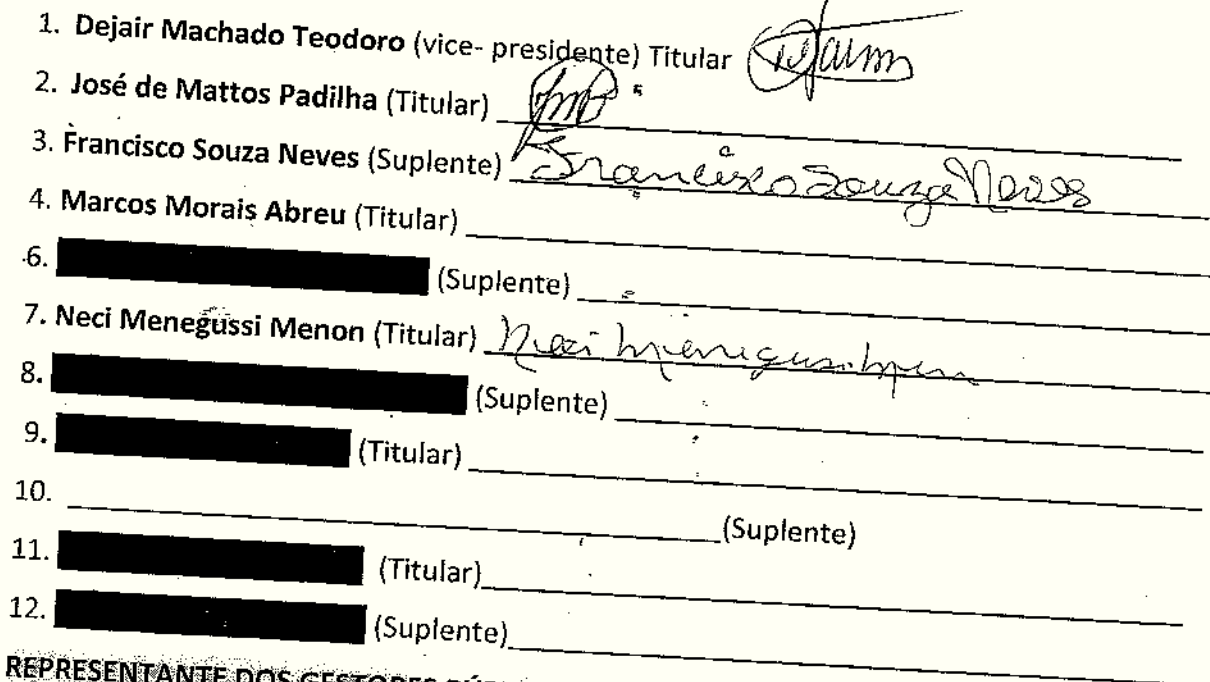 1. Dejair Machado Teodoro (vice- presidente) Titular
2. José de Mattos Padilha (Titular)
3. Francisco Souza Neves (Suplente) Francisco Souza Neves
4. Marcos Morais Abreu (Titular)
6. (Suplente)
7. Neci Menegussi Menon (Titular) Neci
8. (Suplente)
9. (Titular)
10. (Suplente)
11. (Titular)
12. (Suplente)
REPRESENTANTE DOS GESTORES